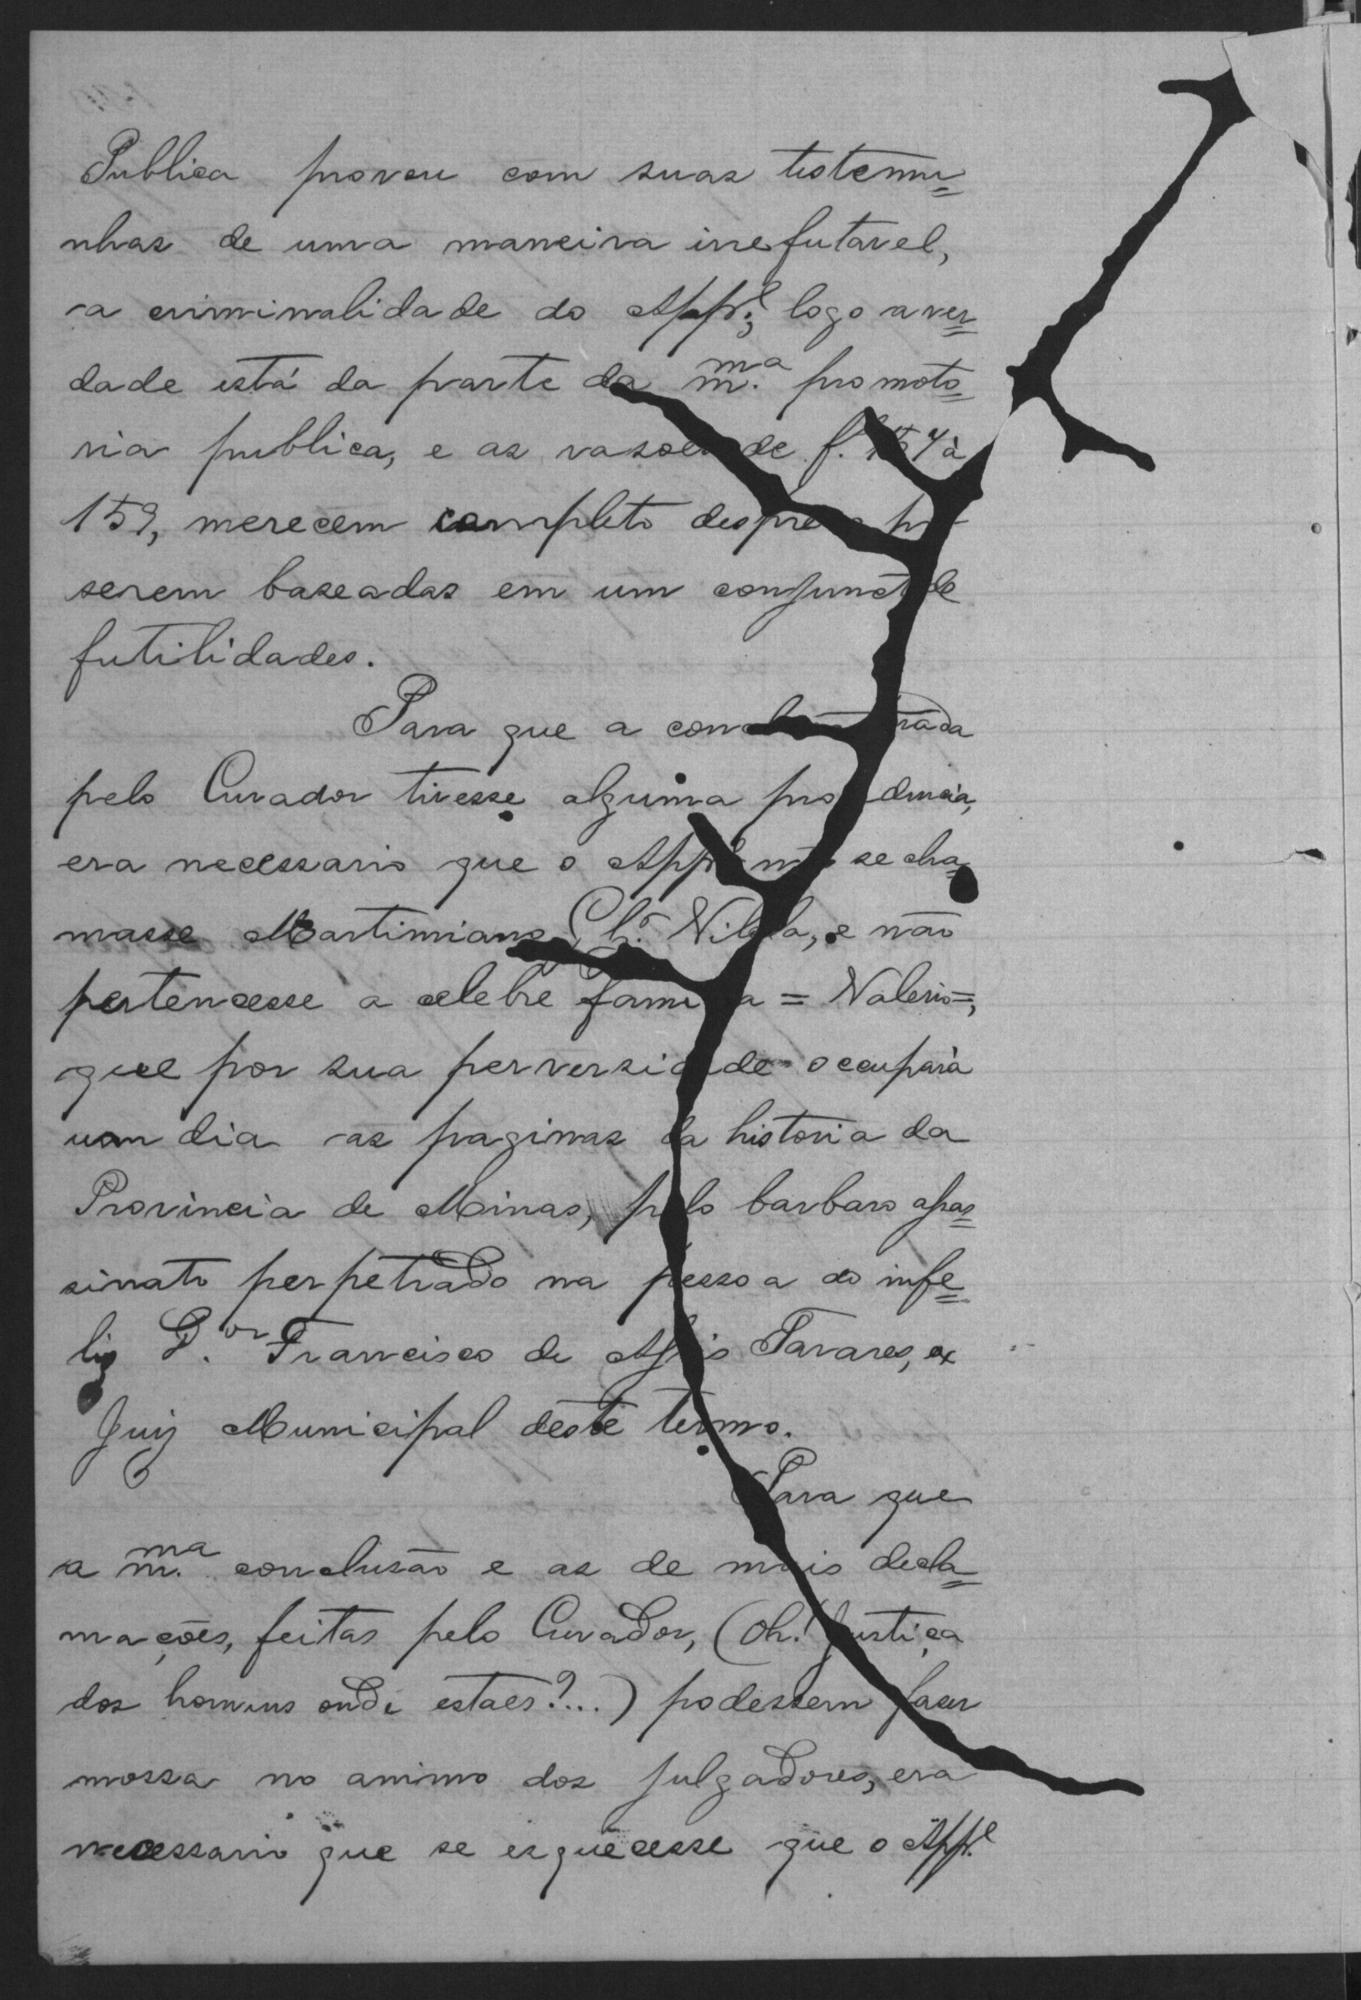 Publica provou com suas testemu=
nhas de uma maneira irrefutavel,
a criminalidade do App.e; logo a ver=
dade está da parte da m.ma promoto=
ria publica, e as rasoes de f. 157 à
159, merecem completo despreso por
serem baseadas em um conjuncto de
futilidades.
Para que a
pelo Curador tivesse alguma procedencia,
era necessario que o App.e não se cha=
masse Martimiano Vilela, e não
pertencesse a celebre familia = Valerio =,
que por sua perversidade occupará
um dia as paginas da historia da
Provincia de Minas, pelo barbaro assas=
sinato perpetrado na pessoa do infe=
liz D.or Francisco de Assis Tavares, ex
Juiz Municipal deste termo.
Para que
a m.ma conclusão e as de mais decla=
mações, feitas pelo Curador, (Oh! Justiça
dos homens onde estaes?...) podessem faser
mossa no animo dos julgadores, era
necessario que se esquecesse que o App.e